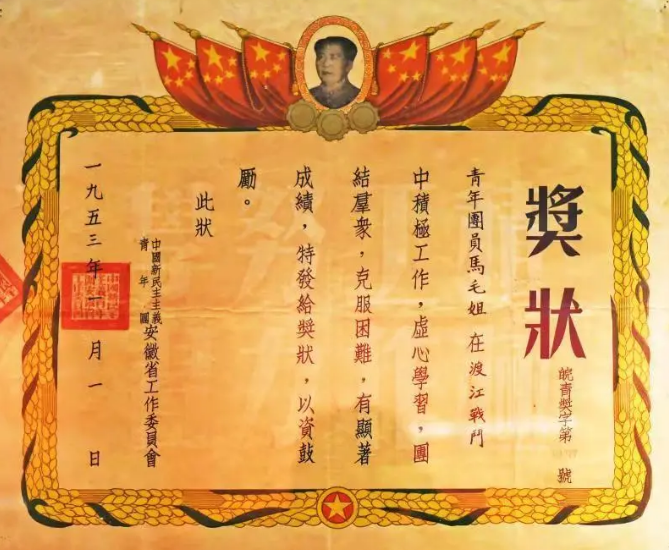 獎狀
皖青獎字第 號
青年團員馬毛姐 在渡江戰鬥
中積極工作，虛心學習，團
結羣衆，克服困難，有顯著
成績，特發給獎狀，以資鼓
勵。
此狀
中國新民主主義青年團安徽省工作委員會
一九五三年一月一日